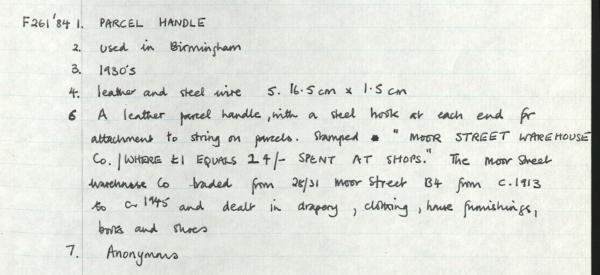 F261'84 1. PARCEL HANDLE
2. used in Birmingham
3. 1930's
4. leather and steel wire 5. 16.5cm x 1.5cm
6 A leather parcel handle, with a steel hook at each end for
attachment to string on parcels. Stamped "MOOR STREET WAREHOUSE
Co. / WHERE £1 EQUALS 24/- SPENT AT SHOPS." The Moor Street
Warehouse Co traded from 28/31 Moor Street B4 from c.1913
to c. 1945 and dealt in drapery, clothing, house furnishings,
boots and shoes
7. Anonymous